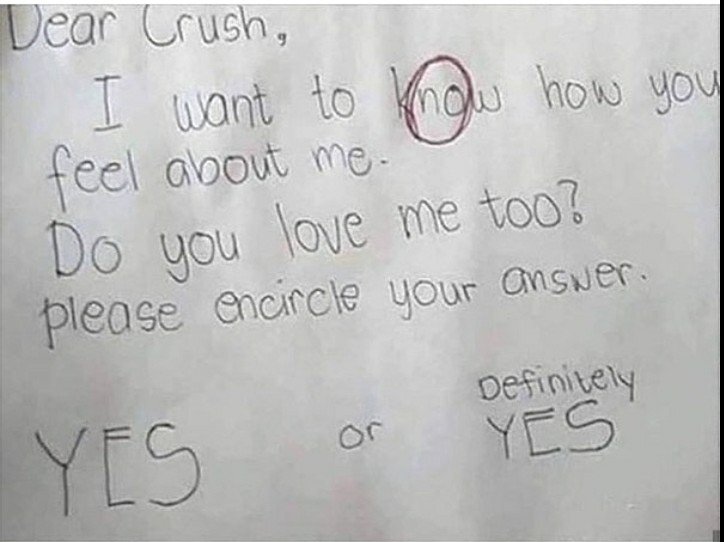 Dear Crush,
I want to know how you
feel about me.
Do you love me too?
please encircle your answer.
Definitely
YES or YES